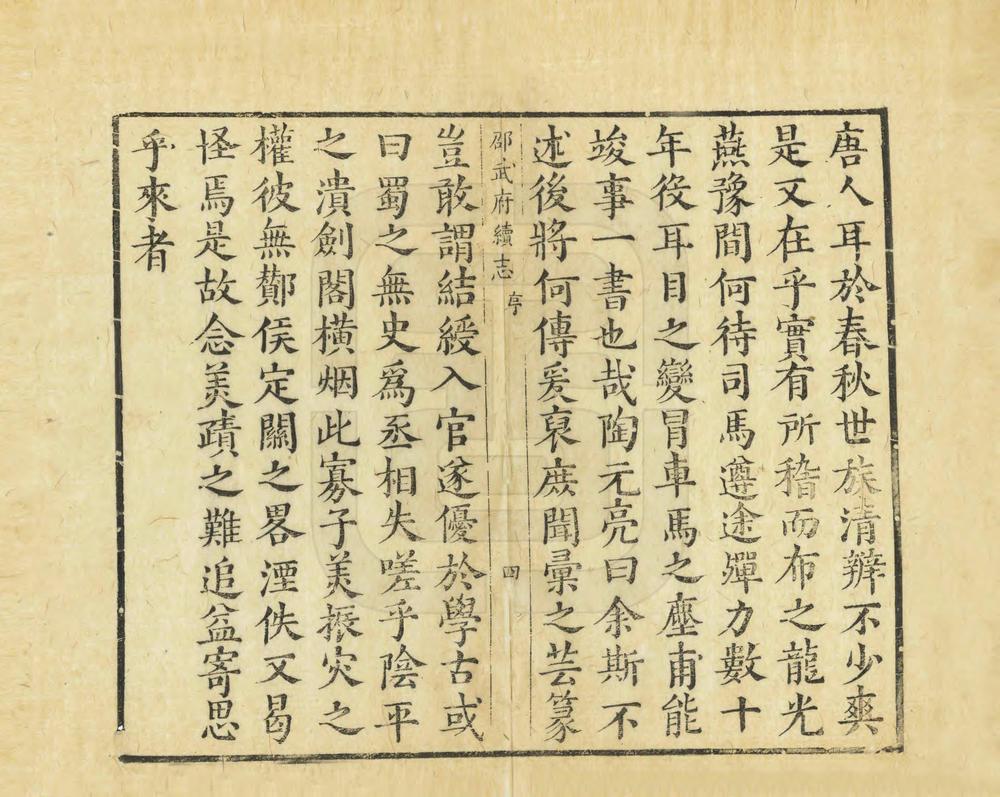 唐人耳於春秋世族清辯不少爽
是又在乎實有所稽而布之龍光
燕豫間何待司馬遵途殫力數十
年役耳目之變冒車馬之塵甫能
竣事一書也哉陶元亮曰余斯不
述後將何傳爰裒庶聞彙之芸篆
邵武府續志 序 四
豈敢謂結綬入官遂優於學古或
曰蜀之無史爲丞相失嗟乎陰平
之潰劍閣橫烟此寡子美振灾之
權彼無酇侯定關之畧湮佚又曷
怪焉是故念美蹟之難追益寄思
乎來者